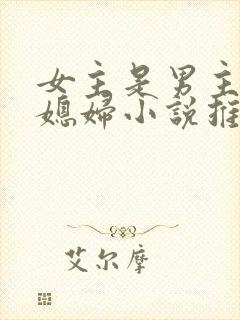 女主是男主
媳婦小説推
艾尔摩